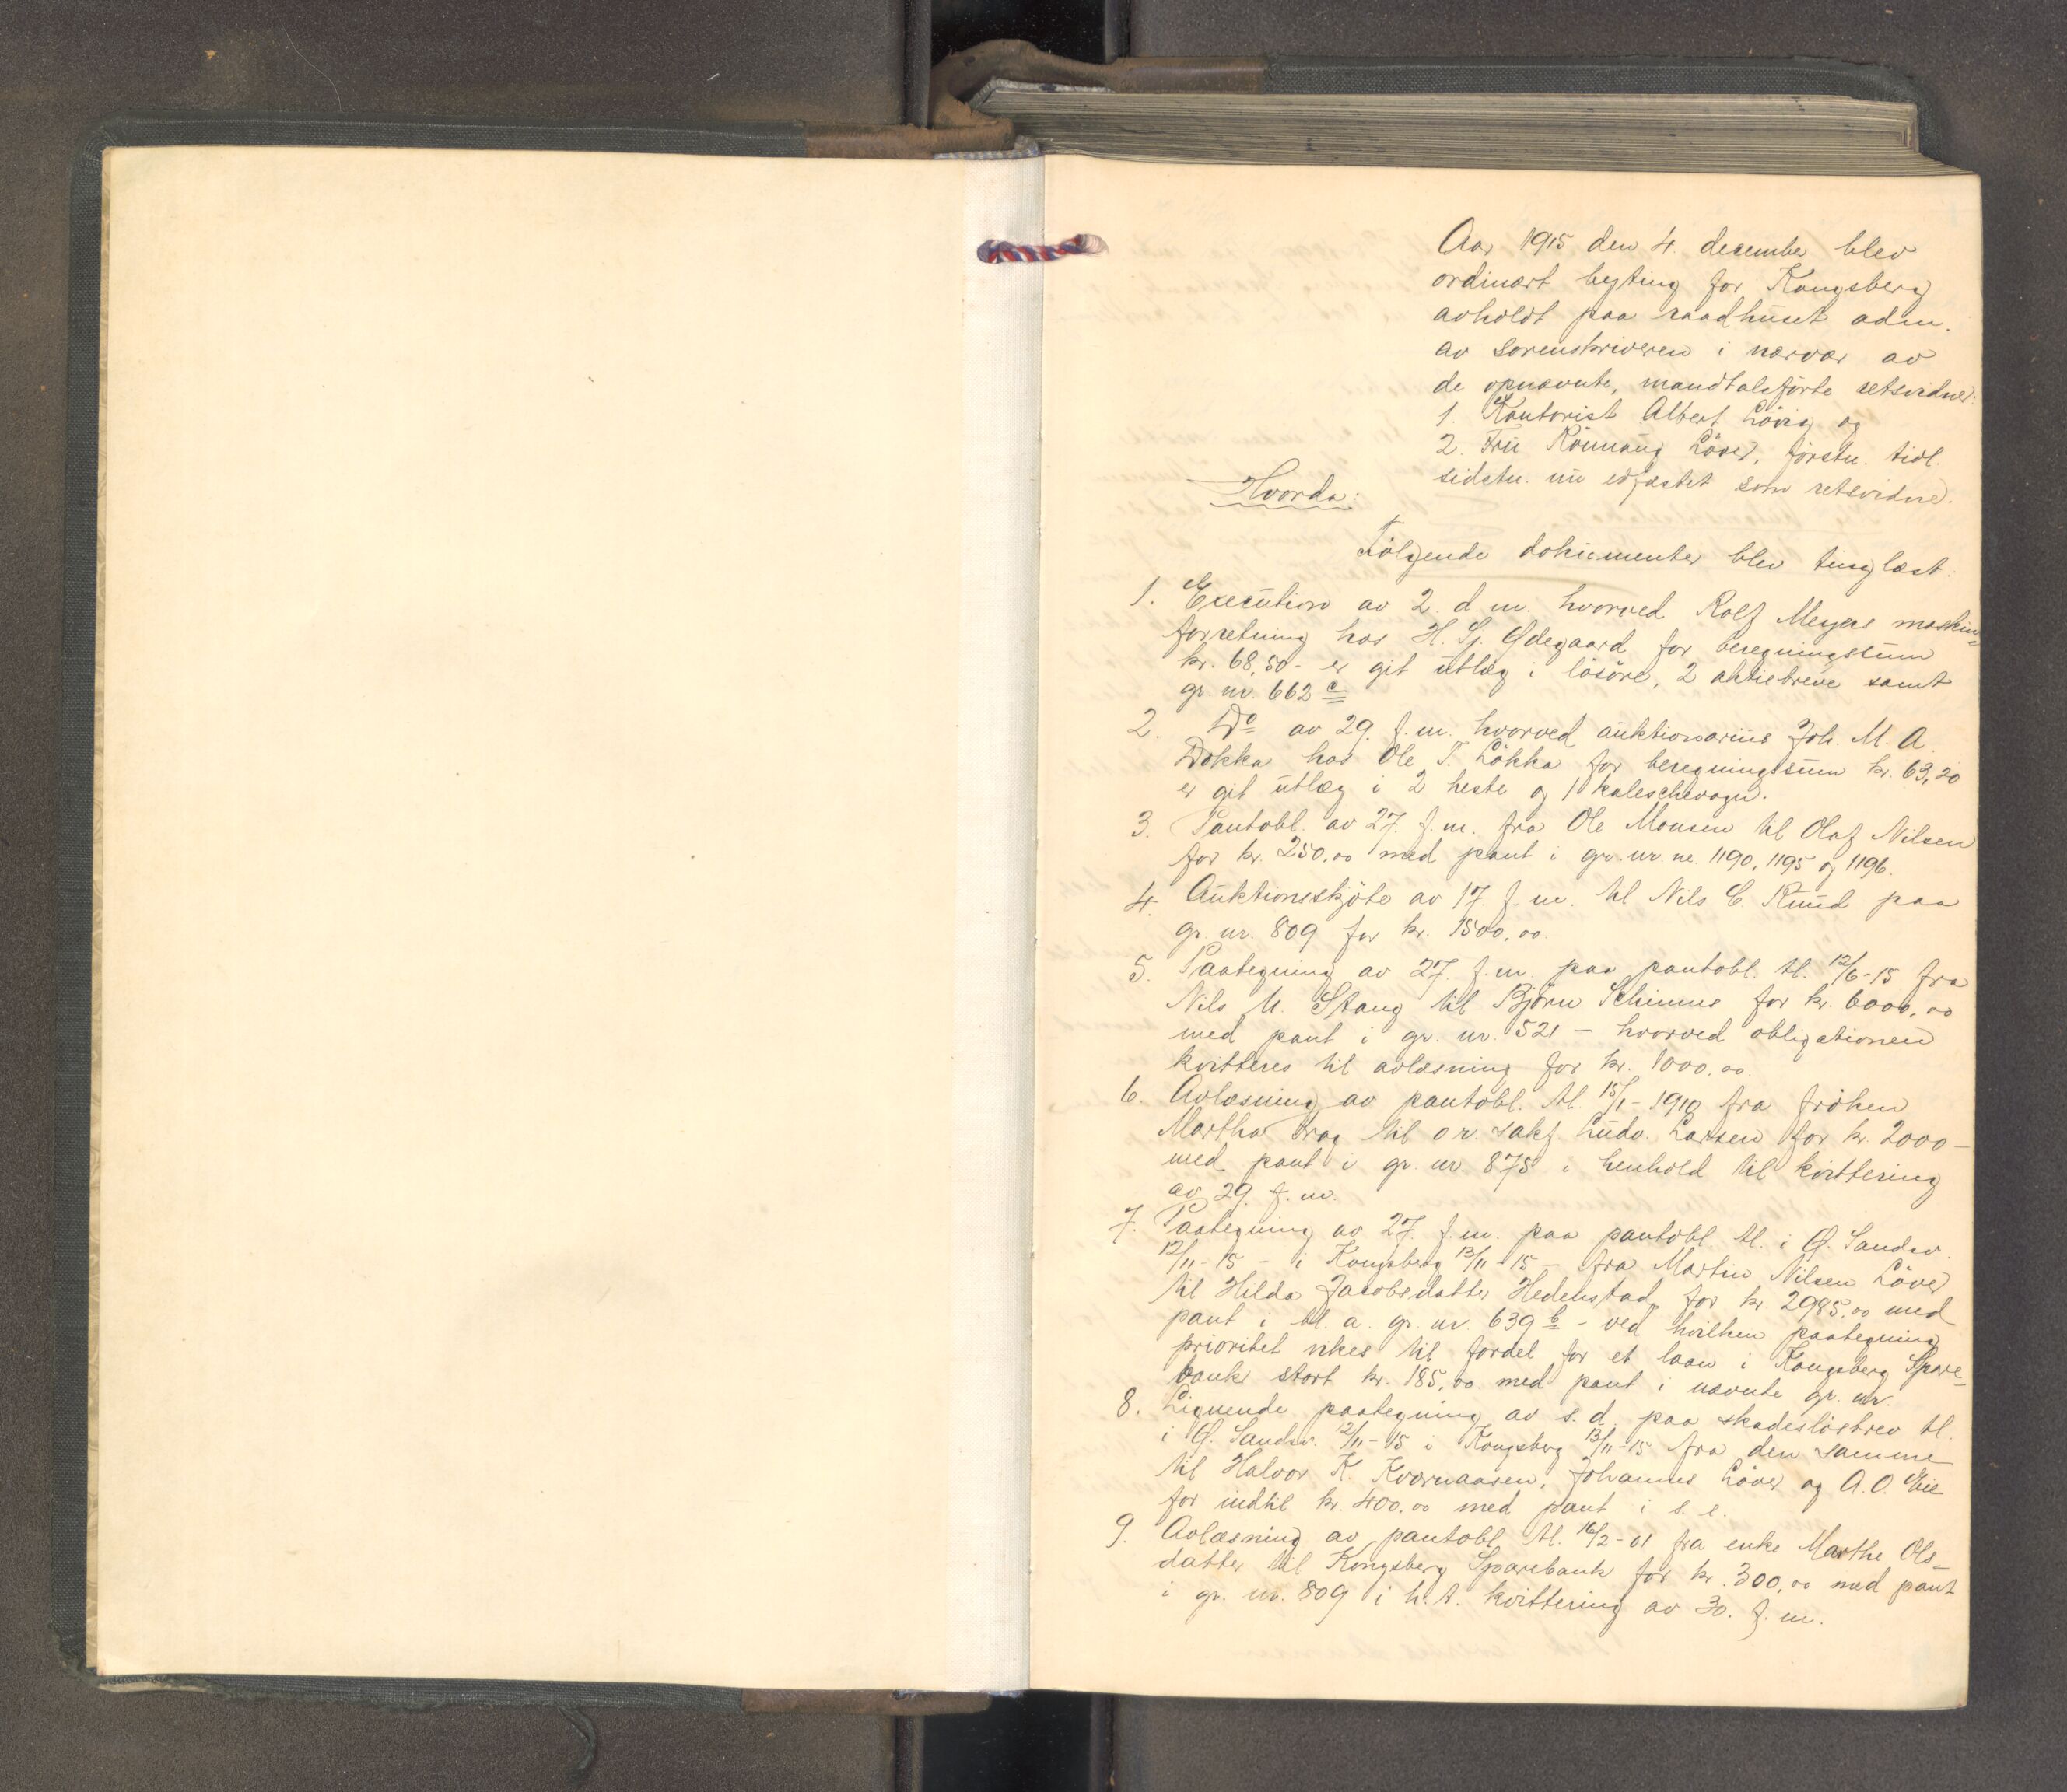 Aar 1915 den 4. december blev
ordinært byting for Kongsberg
avholdt paa raadhuset adm.
av sorenskriveren i nærvær av
de opnævnte, mandtalsførte retsvidner:
1. Kontorist Albert Løvig og
2. Fru Rönnaug Löver, förstn. tidl.
sidstn. nu edfæstet som retsvidne.
Hvorda:
Følgende dokumenter blev tinglæst:
1. Execution av 2. d. m. hvorved Rolf Meyers maskin-
forretning hos H. Sj. Ødegaard for beregningssum
kr. 68,50 - er git utlæg i løsøre, 2 aktiebreve samt
gr. nr 662 c
2. Do av 29. f. m. hvorved auktionarius Joh. M. A.
Dokka hos Ole T. Løkka for beregningssum kr. 63,20
er git utlæg i 2 heste og 1 kaleschevogn.
3. Pantobl. av 27. f. m. fra Ole Monsen til Olaf Nilsen
for kr. 250,00 med pant i gr. nr. ne. 1190, 1195 og 1196.
4. Auktionsskjøte av 17. f. m. til Nils C. Ruud paa
gr. nr. 809 for kr. 1500,00.
5. Paategning av 27. f. m. paa pantobl. tl. 12/6-15 fra
Nils M. Stang til Bjørn Schinnes for kr. 6000,00
med pant i gr. nr. 521 - hvorved obligationen
kvitteres til avlæsning for kr. 1000,00.
6 Avlæsning av pantobl. tl 15/1-1910 fra frøken
Martha Krag til o.r. sakf. Ludv. Larsen for kr. 2000 -
med pant i gr. nr. 875 i henhold til kvittering
av 29. f. m.
7. Paategning av 27. f. m. paa pantobl. tl. i Ø. Sandsv.
12/11-15 - i Kongsberg 13/11-15 - fra Martin Nilsen Løver
til Hilda Jacobsdatter Hedenstad for kr. 2985,00 med
pant i bl. a. gr. nr. 639 b - ved hvilken paategning
prioritet vikes til fordel for et laan i Kongsberg Spare-
bank stort kr. 185,00 med pant i nævnte gr. nr.
8. Lignende paategning av s. d. paa skadesløsbrev tl.
i Ø. Sandsv. 12/11-15 i Kongsberg 13/11-15 fra den samme
til Halvor K. Kværnaasen, Johannes Løver og A. O. Eie
for indtil kr. 400,00 med pant i s. e.
9. Avlæsning av pantobl. tl. 16/2-01 fra enke Marthe Ols-
datter til Kongsberg Sparebank for kr. 300,00 med pant
i gr. nr. 809 i h. t. kvittering av 30. f. m.